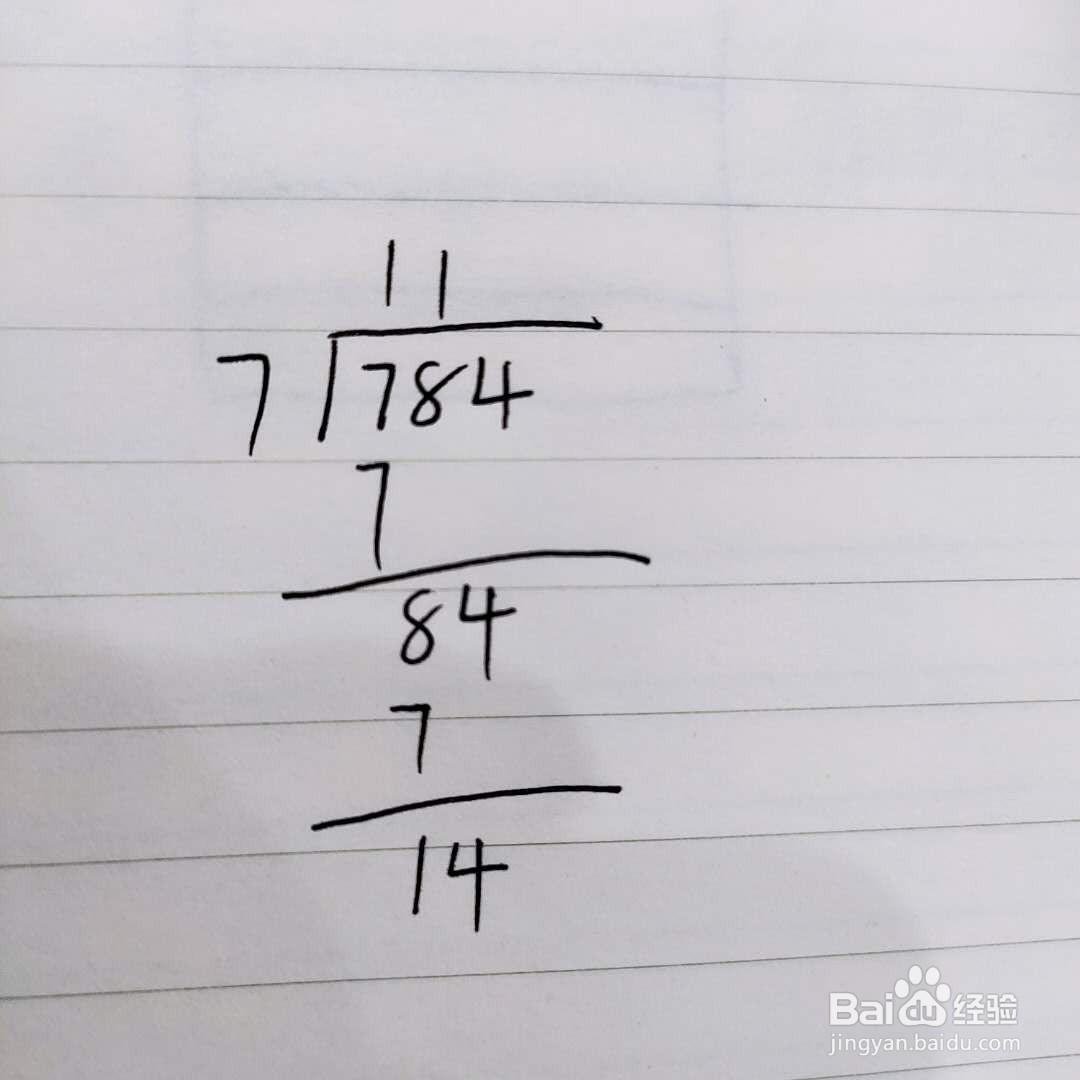 11
7 784
7
84
7
14
Baidu 经验
jingyan.baidu.com